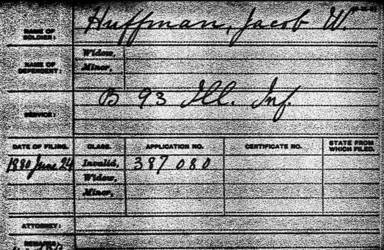 NAME OF SOLDIER: Huffman, Jacob W.
NAME OF DEPENDENT: Widow,
Minor,
SERVICE: B 93 Ill. Inf.
DATE OF FILING. CLASS. APPLICATION NO. CERTIFICATE NO. STATE FROM WHICH FILED.
1880 June 24 Invalid, 387080
Widow,
Minor,
ATTORNEY:
REMARKS: